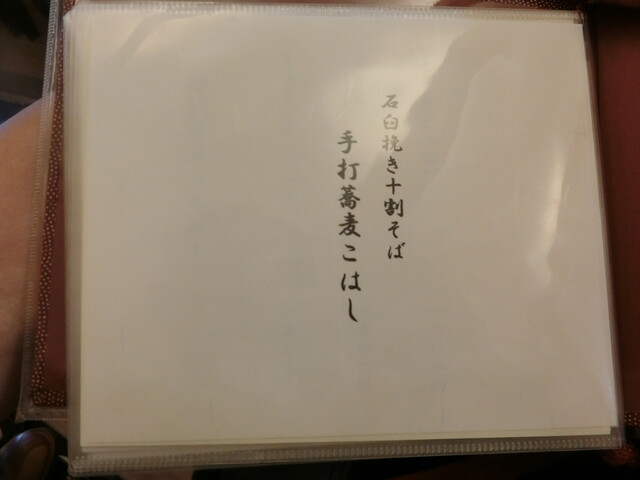 石臼挽き十割そば
手打蕎麦こはし